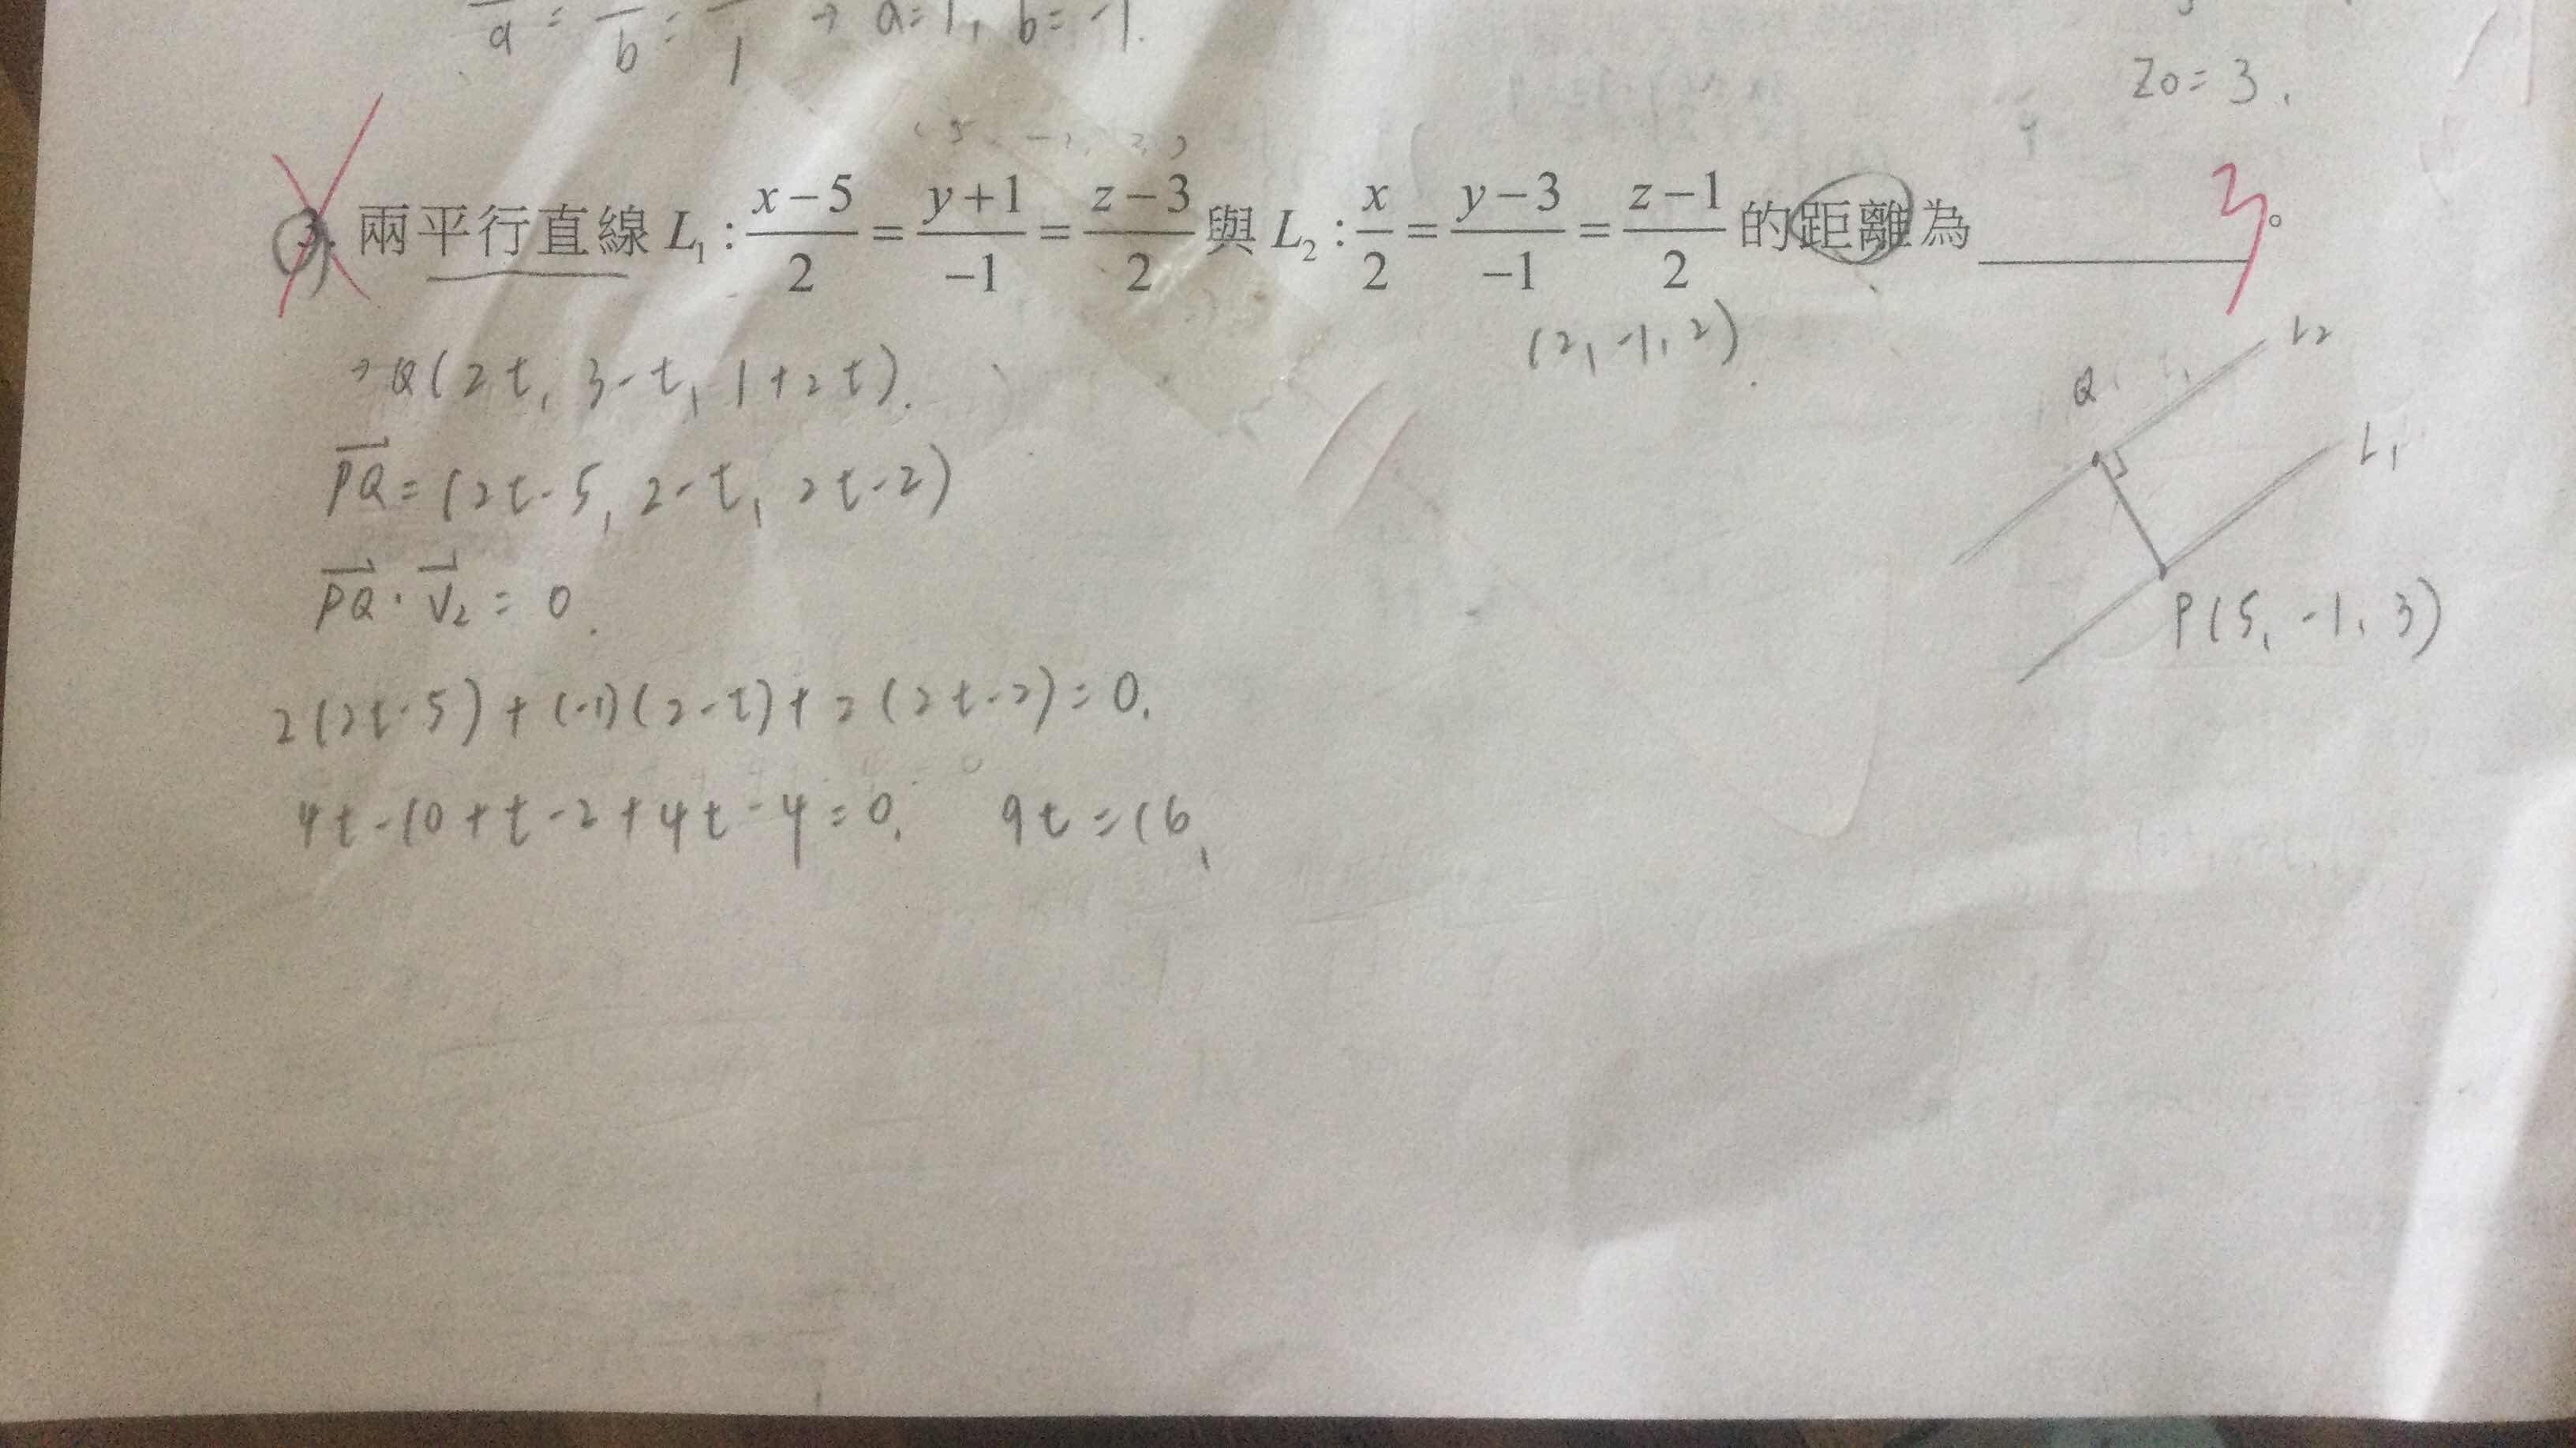 a = b = 1 → a=1, b=-1.
Z0=3.
3. 兩平行直線 L₁ : (x−5)/2 = (y+1)/−1 = (z−3)/2 與 L₂ : x/2 = (y−3)/−1 = (z−1)/2 的距離為________。
3
(2, -1, 2)
Q(2t, 3-t, 1+2t).
PQ=(2t-5, 2-t, 2t-2)
PQ·V₂=0.
2(2t-5)+(-1)(2-t)+2(2t-2)=0.
4t-10+t-2+4t-4=0. 9t=16,
L2
Q
L1
P(5, -1, 3)